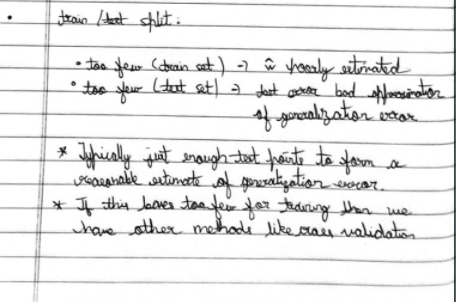 • train / test split :
• too few (train set) -> ŵ poorly estimated
• too few (test set) -> test error bad approximation
of generalization error
* Typically just enough test points to form a
reasonable estimate of generalization error.
* If this leaves too few for training then we
have other methods like cross validation